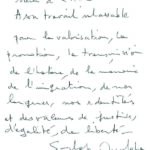 A son travail inlassable
pour la valorisation, la
promotion, la transmission
de l'histoire, de la mémoire
de l'immigration, de nos
langues, nos identités
et des valeurs de justice,
d'égalité, de liberté